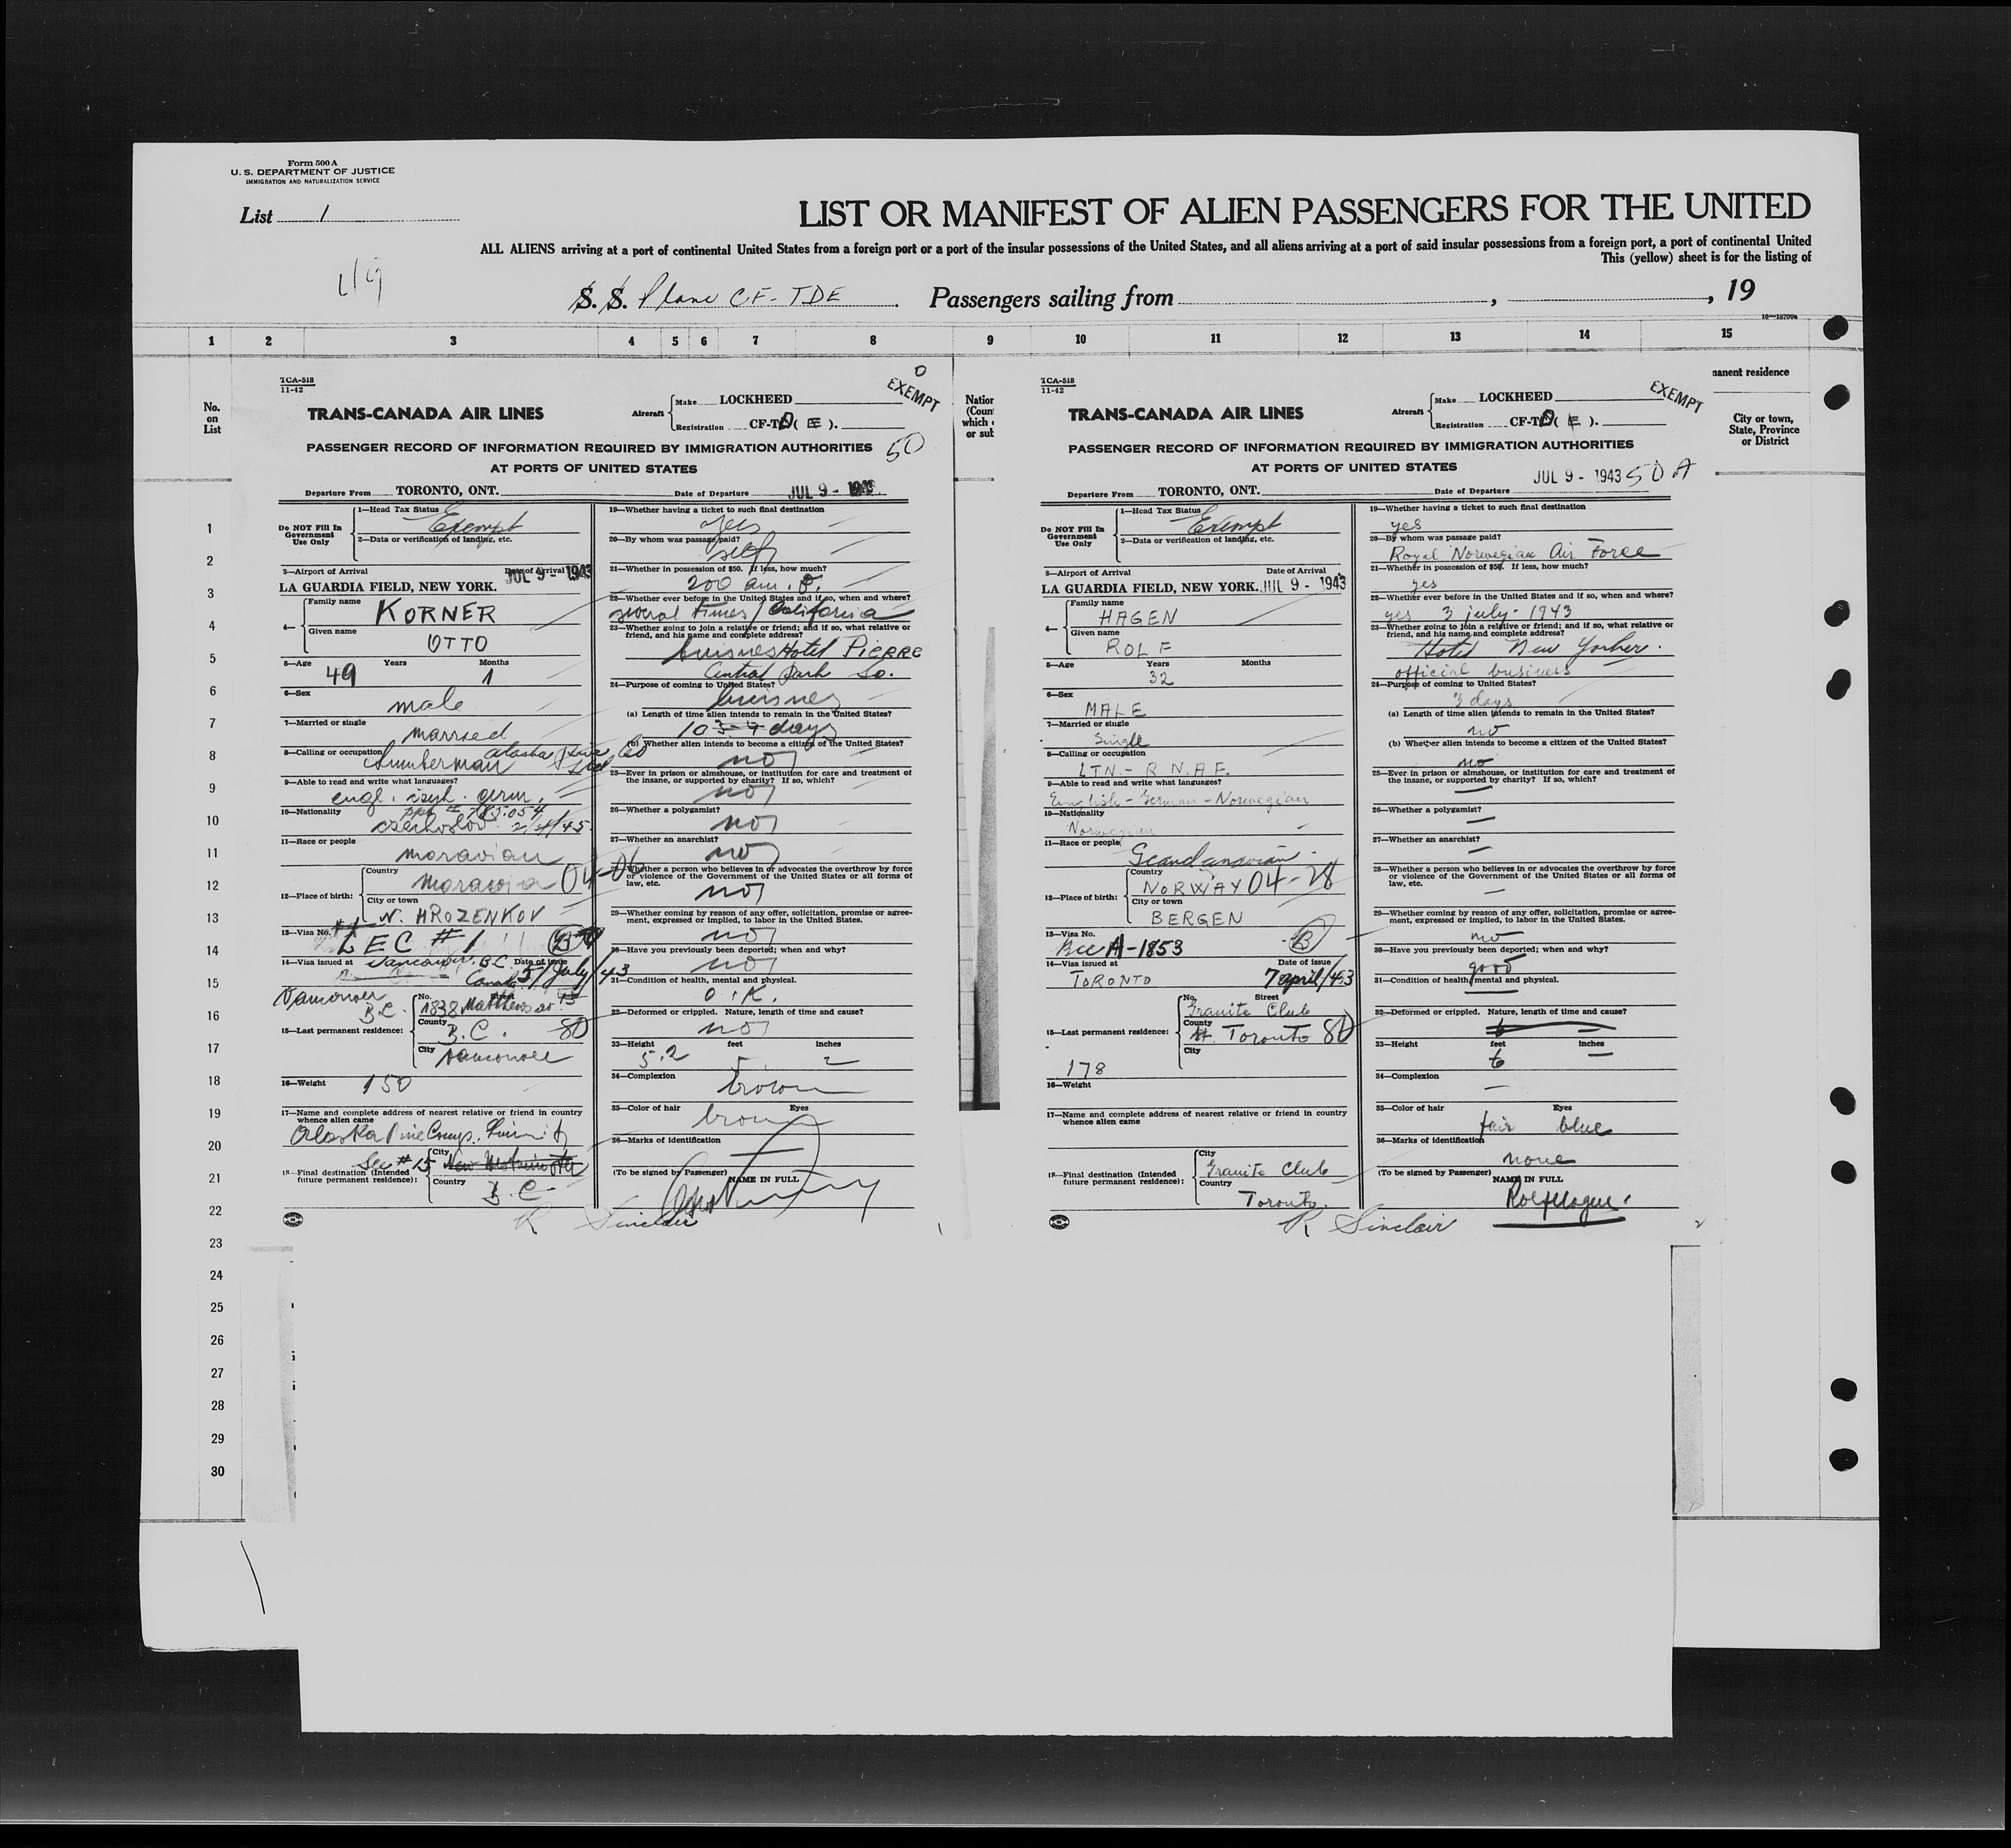 Form 500 A
U. S. DEPARTMENT OF JUSTICE
IMMIGRATION AND NATURALIZATION SERVICE
List 1
LIST OR MANIFEST OF ALIEN PASSENGERS FOR THE UNITED
ALL ALIENS arriving at a port of continental United States from a foreign port or a port of the insular possessions of the United States, and all aliens arriving at a port of said insular possessions from a foreign port, a port of continental United
This (yellow) sheet is for the listing of
S. S. Plane CF-TDE. Passengers sailing from , , 19
16—18700a
1 2 3 4 5 6 7 8 9 10 11 12 13 14 15
No.
on
List
1
2
3
4
5
6
7
8
9
10
11
12
13
14
15
16
17
18
19
20
21
22
23
24
25
26
27
28
29
30
TCA-518
11-42
EXEMPT
TRANS-CANADA AIR LINES
Aircraft Make LOCKHEED
Registration CF-TD( E ).
PASSENGER RECORD OF INFORMATION REQUIRED BY IMMIGRATION AUTHORITIES
AT PORTS OF UNITED STATES
50
Departure From TORONTO, ONT. Date of Departure JUL 9 - 1943
Do NOT Fill In Government Use Only
1—Head Tax Status Exempt
2—Data or verification of landing, etc.
3—Airport of Arrival Date of Arrival
LA GUARDIA FIELD, NEW YORK. JUL 9 - 1943
4— Family name KORNER
Given name OTTO
5—Age Years Months
49 1
6—Sex
male
7—Married or single
married
8—Calling or occupation
Lumberman Alaska Pine Co
9—Able to read and write what languages?
engl. czech. germ.
10—Nationality
czechoslov. 2/4/45
11—Race or people
moravian
12—Place of birth: Country Moravia 04-06
City or town N. HROZENKOV
13—Visa No.
LEC #1 B
14—Visa issued at Vancouver, B.C. Date of issue
Canada 5/July/43
Vancouver B.C.
15—Last permanent residence: No. Street 1838 Matthews
County B.C. 80
City Vancouver
16—Weight 150
17—Name and complete address of nearest relative or friend in country whence alien came
Alaska Pine Comp.
See #15
18—Final destination (Intended future permanent residence): City New Westminster
Country B.C.
R Sinclair
19—Whether having a ticket to such final destination
yes
20—By whom was passage paid?
self
21—Whether in possession of $50. If less, how much?
200 am. $.
22—Whether ever before in the United States and if so, when and where?
several times / California
23—Whether going to join a relative or friend; and if so, what relative or friend, and his name and complete address?
buisnes Hotel PIERRE
Central Park So.
24—Purpose of coming to United States?
buisnes
(a) Length of time alien intends to remain in the United States?
10 3-4 days
(b) Whether alien intends to become a citizen of the United States?
no
25—Ever in prison or almshouse, or institution for care and treatment of the insane, or supported by charity? If so, which?
no
26—Whether a polygamist?
no
27—Whether an anarchist?
no
28—Whether a person who believes in or advocates the overthrow by force or violence of the Government of the United States or all forms of law, etc.
no
29—Whether coming by reason of any offer, solicitation, promise or agreement, expressed or implied, to labor in the United States.
no
30—Have you previously been deported; when and why?
no
31—Condition of health, mental and physical.
O.K.
32—Deformed or crippled. Nature, length of time and cause?
no
33—Height feet inches
5.2 5 2
34—Complexion
brown
35—Color of hair Eyes
brown
36—Marks of identification
(To be signed by Passenger) NAME IN FULL
Nation
(Coun
which
or sub
TCA-518
11-42
EXEMPT
TRANS-CANADA AIR LINES
Aircraft Make LOCKHEED
Registration CF-TD( E ).
PASSENGER RECORD OF INFORMATION REQUIRED BY IMMIGRATION AUTHORITIES
AT PORTS OF UNITED STATES
Departure From TORONTO, ONT. Date of Departure JUL 9 - 1943 50 A
Do NOT Fill In Government Use Only
1—Head Tax Status Exempt
2—Data or verification of landing, etc.
3—Airport of Arrival Date of Arrival
LA GUARDIA FIELD, NEW YORK. JUL 9 - 1943
4— Family name HAGEN
Given name ROLF
5—Age Years Months
32
6—Sex
MALE
7—Married or single
Single
8—Calling or occupation
LTN - R.N.A.F.
9—Able to read and write what languages?
English - German - Norwegian
10—Nationality
Norwegian
11—Race or people
Scandanavian
12—Place of birth: Country NORWAY 04-28
City or town BERGEN
13—Visa No.
BCC A-1853 B
14—Visa issued at Date of issue
TORONTO 7 april/43
15—Last permanent residence: No. Street Granite Club
County Toronto 80
City
178
16—Weight
17—Name and complete address of nearest relative or friend in country whence alien came
18—Final destination (Intended future permanent residence): City Granite Club
Country Toronto.
R Sinclair
19—Whether having a ticket to such final destination
yes
20—By whom was passage paid?
Royal Norwegian Air Force
21—Whether in possession of $50. If less, how much?
yes
22—Whether ever before in the United States and if so, when and where?
yes 3 july - 1943
23—Whether going to join a relative or friend; and if so, what relative or friend, and his name and complete address?
Hotel New Yorker.
official business
24—Purpose of coming to United States?
3 days
(a) Length of time alien intends to remain in the United States?
no
(b) Whether alien intends to become a citizen of the United States?
no
25—Ever in prison or almshouse, or institution for care and treatment of the insane, or supported by charity? If so, which?
26—Whether a polygamist?
27—Whether an anarchist?
28—Whether a person who believes in or advocates the overthrow by force or violence of the Government of the United States or all forms of law, etc.
29—Whether coming by reason of any offer, solicitation, promise or agreement, expressed or implied, to labor in the United States.
no
30—Have you previously been deported; when and why?
good
31—Condition of health, mental and physical.
32—Deformed or crippled. Nature, length of time and cause?
33—Height feet inches
6
34—Complexion
35—Color of hair Eyes
fair blue
36—Marks of identification
none
(To be signed by Passenger) NAME IN FULL
Rolf Hagen
manent residence
City or town,
State, Province
or District